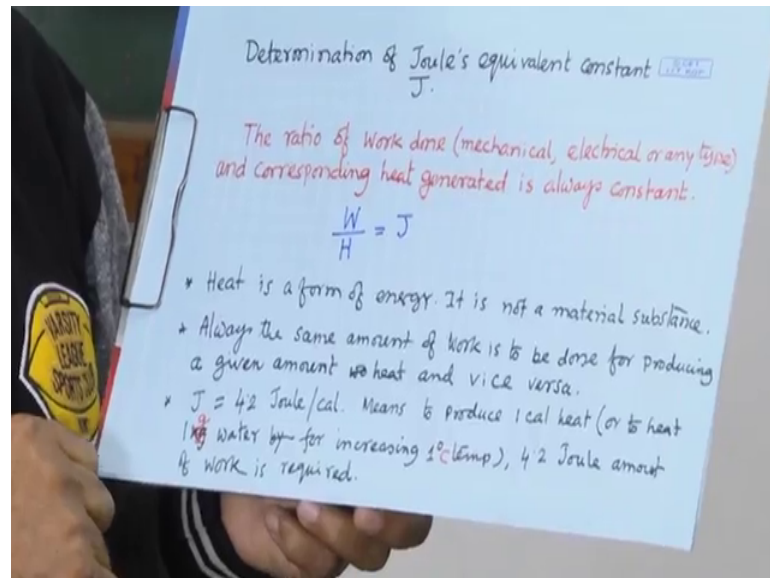 Determination of Joule's equivalent constant
J.
The ratio of work done (mechanical, electrical or any type)
and corresponding heat generated is always constant.
W
H = J
* Heat is a form of energy. It is not a material substance.
* Always the same amount of work is to be done for producing
a given amount heat and vice versa.
* J = 4.2 Joule/cal. Means to produce 1 cal heat (or to heat
1 g water for increasing 1°C temp), 4.2 Joule amount
of work is required.
VARSITY
LEAGUE
SPORTS